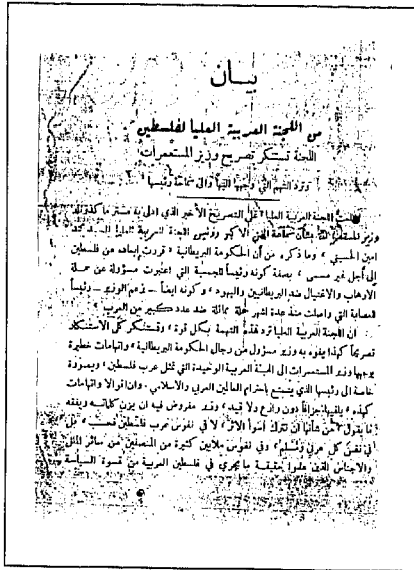 بيـــان
من اللجنة العربية العليا لفلسطين
اللجنة تستنكر تصريح وزير المستعمرات
وترد التهم التي وجهها اليها والى سماحة رئيسها
اللجنة العربية العليا على التصريح الأخير الذي ادلى به مستر ماكدونالد
وزير المستعمرات بشأن سماحة المفتي الاكبر ورئيس اللجنة العربية العليا السيد محمد
امين الحسيني، وما ذكره من أن الحكومة البريطانية قررت إبعاده عن فلسطين
إلى أجل غير مسمى، بصفة كونه رئيساً للجمعية التي اعتبرت مسؤولة عن حملة
الارهاب والاغتيال ضد البريطانيين واليهود، وكونه ايضاً - بزعم الوزير - رئيساً
للعصابة التي واصلت منذ عدة اشهر حملة مماثلة ضد عدد كبير من العرب
ان اللجنة العربية العليا ترد هذه التهمة بكل قوة، وتستنكر كل الاستنكار
تصريحاً كهذا يفوه به وزير مسؤول من رجال الحكومة البريطانية، واتهامات خطيرة
يوجهها وزير المستعمرات الى الهيئة العربية الوحيدة التي تمثل عرب فلسطين، وبصورة
خاصة الى رئيسها الذي يتمتع باحترام العالمين العربي والاسلامي. وان اقوالا واتهامات
كهذه يلقيها جزافاً دون وازع ولا قيد، وقد مفروض فيه ان يزن كلماته ويفقه
ما يقول، من شأنها ان تترك اسوأ الاثر، لا في نفوس عرب فلسطين فحسب، بل
في نفس كل عربي ومسلم، وفي نفوس ملايين كثيرة من المنصفين من سائر الملل
والاجناس الذين علموا حقيقة ما يجري في فلسطين العربية من قسوة السياسة